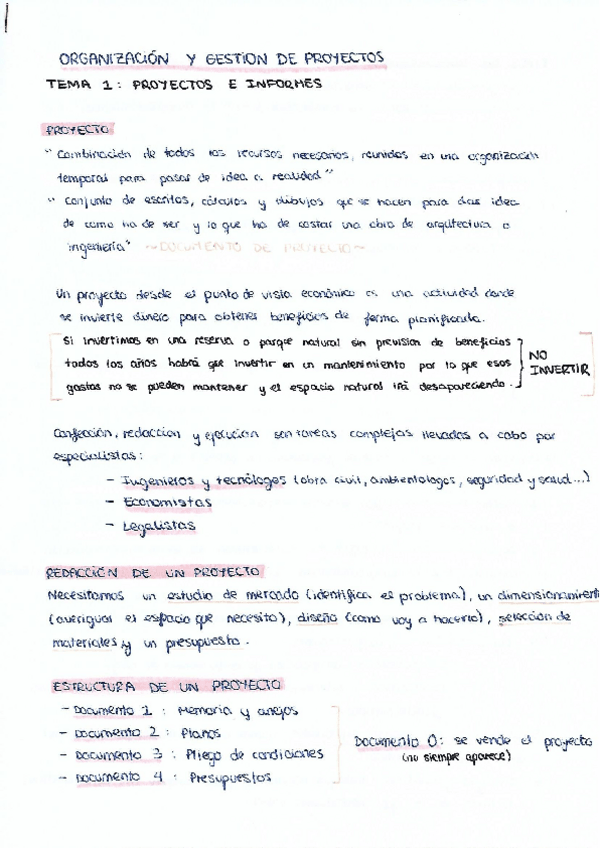 ORGANIZACIÓN Y GESTION DE PROYECTOS
TEMA 1: PROYECTOS E INFORMES
PROYECTO
"Combinación de todos los recursos necesarios, reunidos en una organización
temporal para pasar de idea a realidad"
"Conjunto de escritos, cálculos y dibujos que se hacen para dar idea
de como ha de ser y lo que ha de costar una obra de arquitectura o
ingeniería" ~DOCUMENTO DE PROYECTO~
Un proyecto desde el punto de vista económico es una actividad donde
se invierte dinero para obtener beneficios de forma planificada.
Si invertimos en una reserva o parque natural sin prevision de beneficios
todos los años habrá que invertir en un mantenimiento por lo que esos
gastos no se pueden mantener y el espacio natural irá desapareciendo.
NO
INVERTIR
Confección, redacción y ejecución son tareas complejas llevadas a cabo por
especialistas:
- Ingenieros y tecnólogos (obra civil, ambientologos, seguridad y salud...)
- Economistas
- Legalistas
REDACCIÓN DE UN PROYECTO
Necesitamos un estudio de mercado (identifica el problema), un dimensionamient
(averiguar el espacio que necesito), diseño (como voy a hacerlo), selección de
materiales, y un presupuesto.
ESTRUCTURA DE UN PROYECTO
- Documento 1: Memoria y anejos
- Documento 2: Planos
- Documento 3: Pliego de condiciones
- Documento 4: Presupuestos
Documento 0: se vende el proyecto
(no siempre aparece)